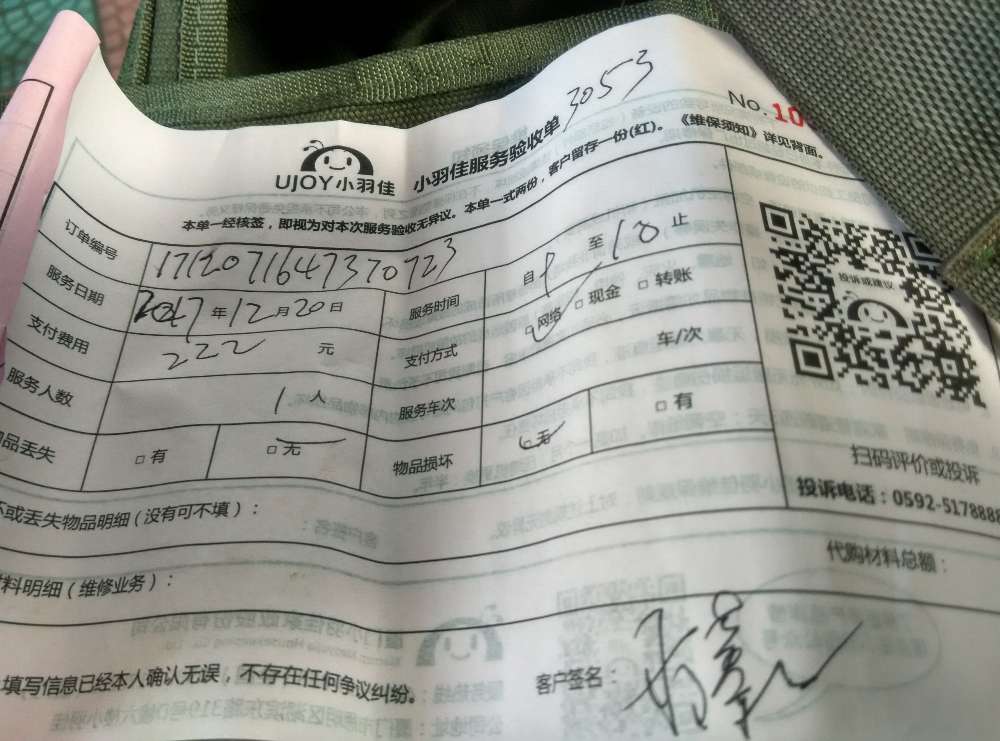 3053
No. 10
UJOY小羽佳 小羽佳服务验收单
本单一经核签，即视为对本次服务验收无异议。本单一式两份，客户留存一份(红)。《维保须知》详见背面。
订单编号 1712071647370723 服务时间 自 9 至 10 止
服务日期 2017年12月20日 支付方式 □网络 □现金 □转账
支付费用 222 元 服务车次 车/次
服务人数 1 人 物品损坏 □无 □有
品丢失 □有 □无
投诉或建议
扫码评价或投诉
投诉电话：0592-5178888
坏或丢失物品明细(没有可不填)：
料明细(维修业务)：
代购材料总额：
填写信息已经本人确认无误，不存在任何争议纠纷。 客户签名：